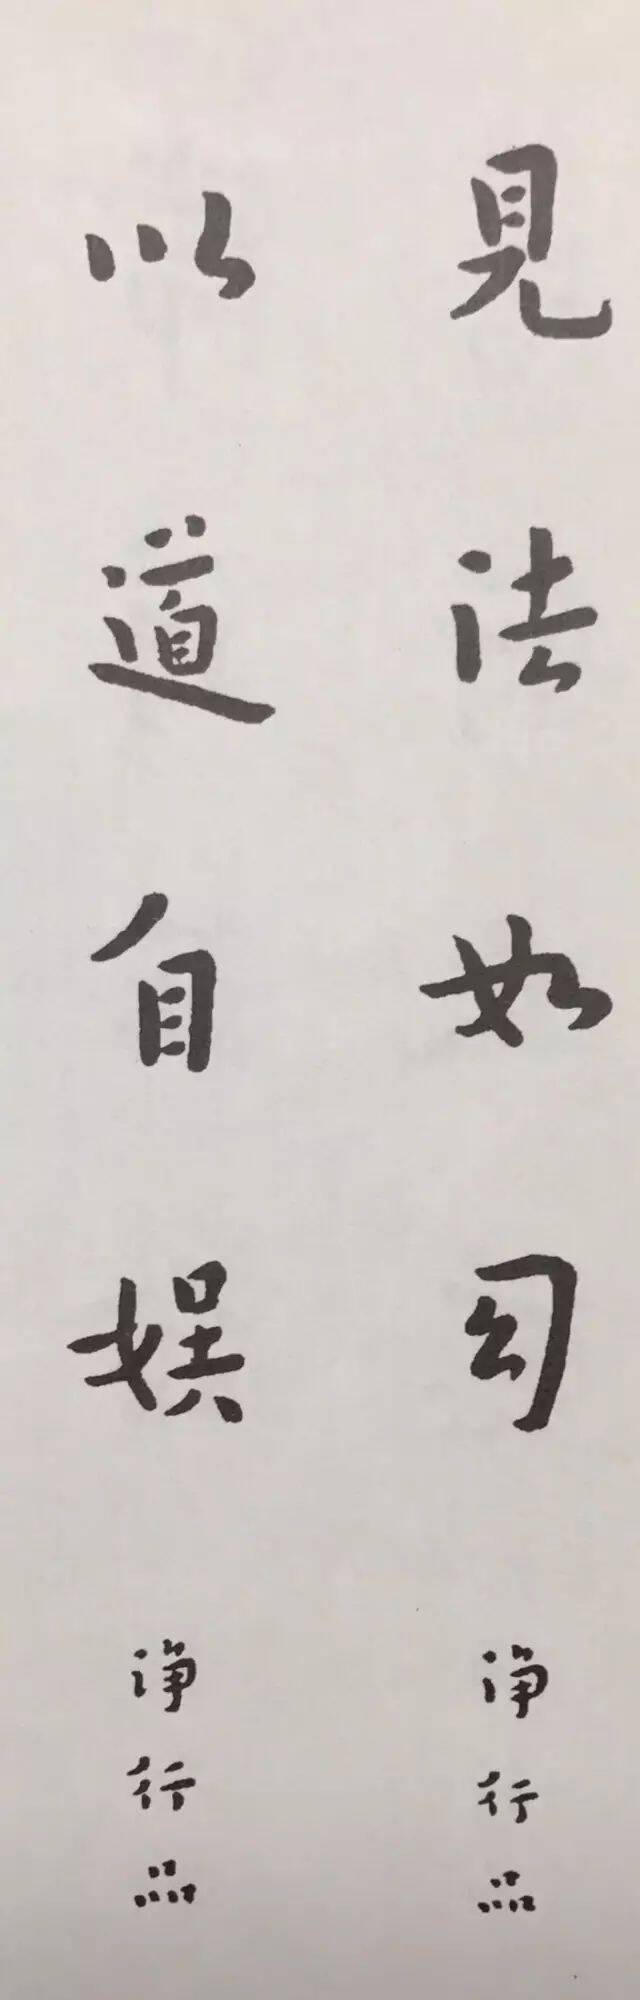 見法如幻
淨行品
以道自娱
淨行品